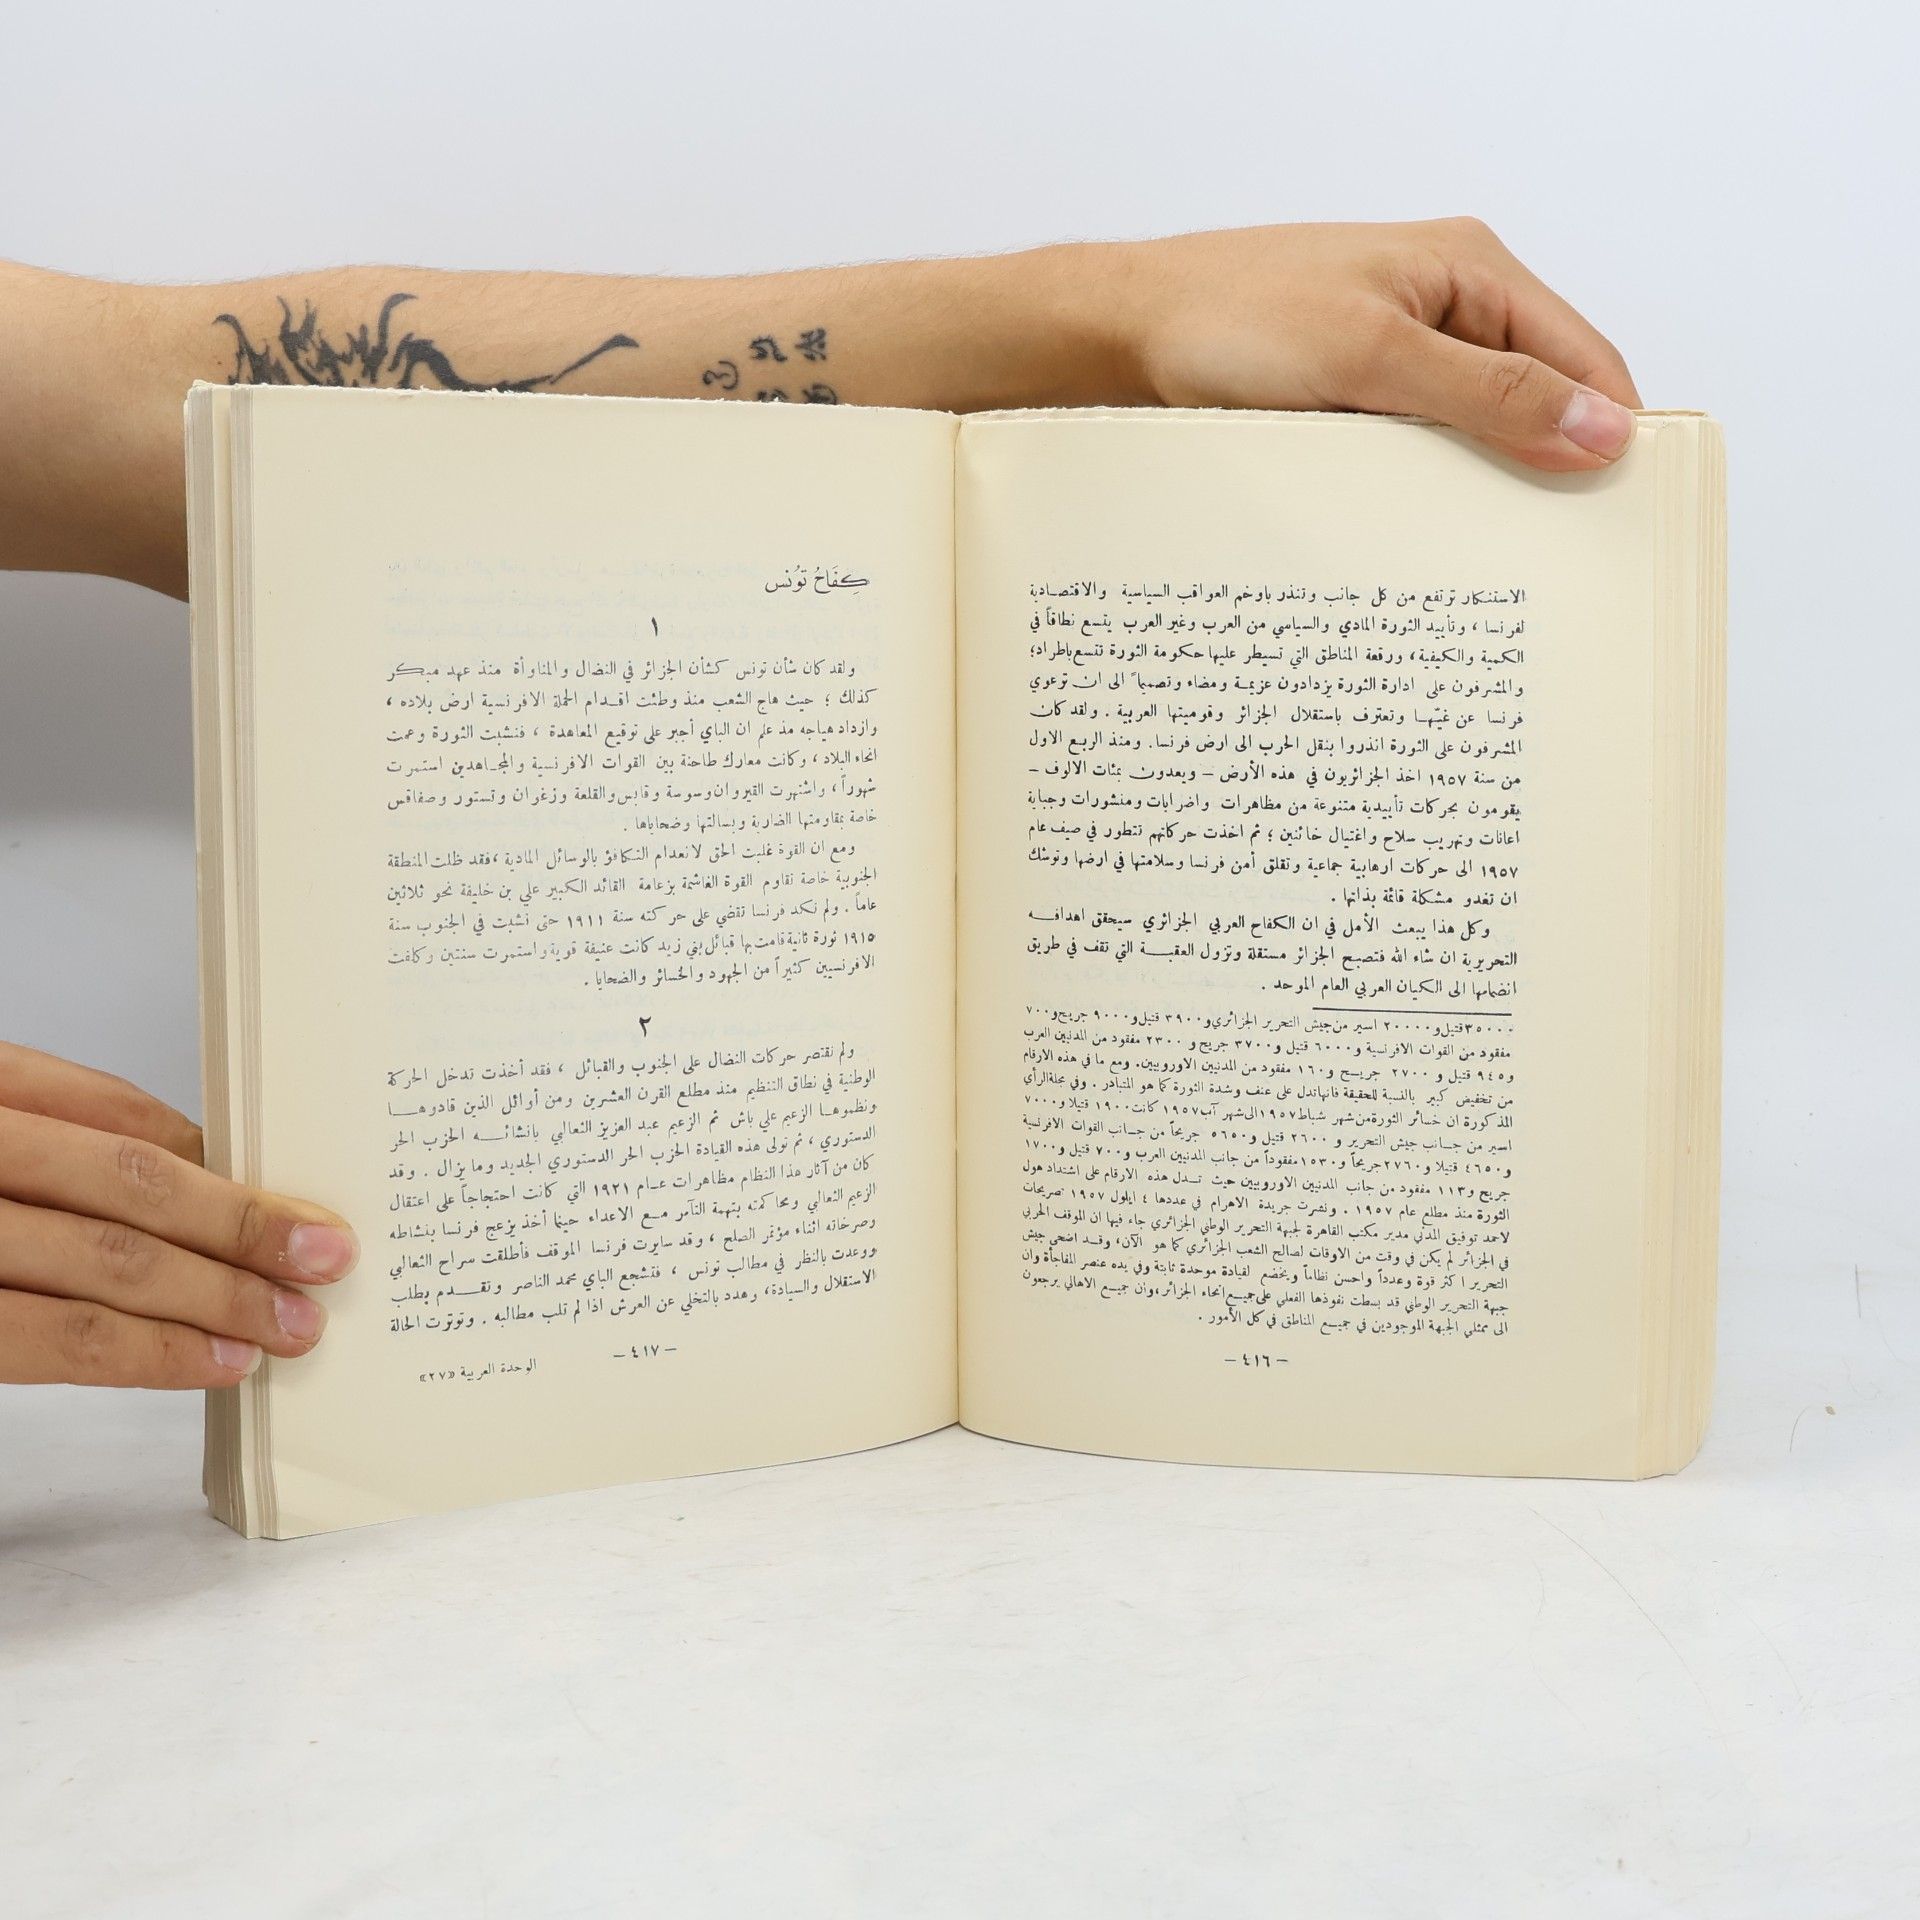 الاستنكار ترتفع من كل جانب وتنذر باوخم العواقب السياسية والاقتصادية
لفرنسا ، وتأييد الثورة المادي والسياسي من العرب وغير العرب يتسع نطاقاً في
الكمية والكيفية، ورقعة المناطق التي تسيطر عليها حكومة الثورة تتسع باطراد؛
والمشرفون على ادارة الثورة يزدادون عزيمة ومضاء وتصميماً الى ان ترعوي
فرنسا عن غيّها وتعترف باستقلال الجزائر وقوميتها العربية . ولقد كان
المشرفون على الثورة انذروا بنقل الحرب الى ارض فرنسا. ومنذ الربع الاول
من سنة ١٩٥٧ اخذ الجزائريون في هذه الأرض – ويعدون بمئات الالوف –
يقومون بحركات تأييدية متنوعة من مظاهرات واضرابات ومنشورات وجباية
اعانات وتهريب سلاح واغتيال خائنين ؛ ثم اخذت حركاتهم تتطور في صيف عام
١٩٥٧ الى حركات ارهابية جماعية وتقلق أمن فرنسا وسلامتها في ارضها وتوشك
ان تغدو مشكلة قائمة بذاتها .
وكل هذا يبعث الأمل في ان الكفاح العربي الجزائري سيحقق اهدافه
التحريرية ان شاء الله فتصبح الجزائر مستقلة وتزول العقبة التي تقف في طريق
انضمامها الى الكيان العربي العام الموحد .
٣٥٠٠٠ قتيل و ٢٠٠٠٠ اسير من جيش التحرير الجزائري و ٣٩٠٠ قتيل و ٩٠٠٠ جريح و ٧٠٠
مفقود من القوات الافرنسية و ٦٠٠٠ قتيل و ٣٧٠٠ جريح و ٢٣٠٠ مفقود من المدنيين العرب
و ٩٤٥ قتيل و ٢٧٠٠ جريح و ١٦٠ مفقود من المدنيين الاوروبيين. ومع ما في هذه الارقام
من تخفيض كبير بالنسبة للحقيقة فانها تدل على عنف وشدة الثورة كما هو المتبادر . وفي مجلة الرأي
المذكورة ان خسائر الثورة من شهر شباط ١٩٥٧ الى شهر آب ١٩٥٧ كانت ١٩٠٠ قتيلا و ٧٠٠٠
اسير من جانب جيش التحرير و ٢٦٠٠ قتيل و ٥٦٥٠ جريحاً من جانب القوات الافرنسية
و ٤٦٥٠ قتيلا و ٢٧٦٠ جريحاً و ١٥٣٠ مفقوداً من جانب المدنيين العرب و ٧٠٠ قتيل و ١٧٠٠
جريح و ١١٣ مفقود من جانب المدنيين الاوروبيين حيث تدل هذه الارقام على اشتداد هول
الثورة منذ مطلع عام ١٩٥٧ . ونشرت جريدة الاهرام في عددها ٤ ايلول ١٩٥٧ تصريحات
لاحمد توفيق المدني مدير مكتب القاهرة لجبهة التحرير الوطني الجزائري جاء فيها ان الموقف الحربي
في الجزائر لم يكن في وقت من الاوقات لصالح الشعب الجزائري كما هو الآن، وقد اضحى جيش
التحرير اكثر قوة وعدداً واحسن نظاماً ويخضع لقيادة موحدة ثابتة وفي يده عنصر المفاجأة وان
جبهة التحرير الوطني قد بسطت نفوذها الفعلي على جميع انحاء الجزائر، وان جميع الاهالي يرجعون
الى ممثلي الجبهة الموجودين في جميع المناطق في كل الأمور .
– ٤١٦ –
كِفَاحُ تُونُس
١
ولقد كان شأن تونس كشأن الجزائر في النضال والمناوأة منذ عهد مبكر
كذلك ؛ حيث هاج الشعب منذ وطئت اقدام الحملة الافرنسية ارض بلاده ،
وازداد هياجه مذ علم ان الباي أجبر على توقيع المعاهدة ، فنشبت الثورة وعمت
انحاء البلاد ، وكانت معارك طاحنة بين القوات الافرنسية والمجاهدين استمرت
شهوراً ، واشتهرت القيروان وسوسة وقابس والقلعة وزغوان وتستور وصفاقس
خاصة بمقاومتها الضارية وبسالتها وضحاياها .
ومع ان القوة غلبت الحق لانعدام التكافؤ بالوسائل المادية ، فقد ظلت المنطقة
الجنوبية خاصة تقاوم القوة الغاشمة بزعامة القائد الكبير علي بن خليفة نحو ثلاثين
عاماً . ولم تكد فرنسا تقضي على حركته سنة ١٩١١ حتى نشبت في الجنوب سنة
١٩١٥ ثورة ثانية قامت بها قبائل بني زيد كانت عنيفة قوية واستمرت سنتين وكلفت
الافرنسيين كثيراً من الجهود والخسائر والضحايا .
٢
ولم تقتصر حركات النضال على الجنوب والقبائل ، فقد أخذت تدخل الحركة
الوطنية في نطاق التنظيم منذ مطلع القرن العشرين ومن أوائل الذين قادوها
ونظموها الزعيم علي باش ثم الزعيم عبد العزيز الثعالبي بانشائه الحزب الحر
الدستوري ، ثم تولى هذه القيادة الحزب الحر الدستوري الجديد وما يزال . وقد
كان من آثار هذا النظام مظاهرات عام ١٩٢١ التي كانت احتجاجاً على اعتقال
الزعيم الثعالبي ومحاكمته بتهمة التآمر مع الاعداء حينما أخذ يزعج فرنسا بنشاطه
وصرخاته اثناء مؤتمر الصلح ، وقد سايرت فرنسا الموقف فأطلقت سراح الثعالبي
ووعدت بالنظر في مطالب تونس ، فتشجع الباي محمد الناصر وتقدم يطلب
الاستقلال والسيادة، وهدد بالتخلي عن العرش اذا لم تلب مطالبه . وتوترت الحالة
– ٤١٧ –
الوحدة العربية «٢٧»